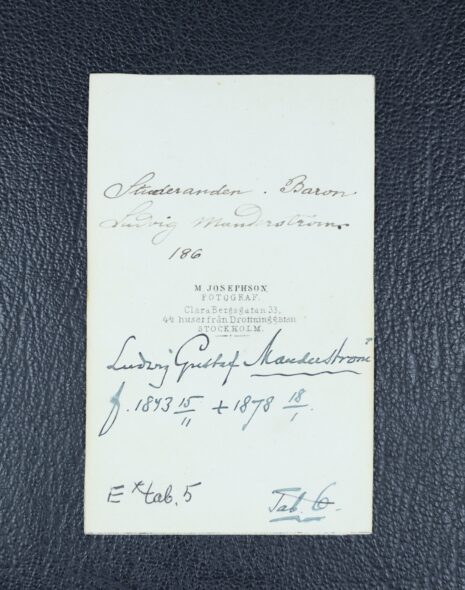 Studeranden. Baron
Ludvig Manderström.
186
M. JOSEPHSON,
FOTOGRAF.
Clara Bergsgatan 33,
4de huset från Drottninggatan
STOCKHOLM.
Ludvig Gustaf Manderström
f. 1843 15/11 + 1878 18/1.
Ex tab. 5
Tab. 6.